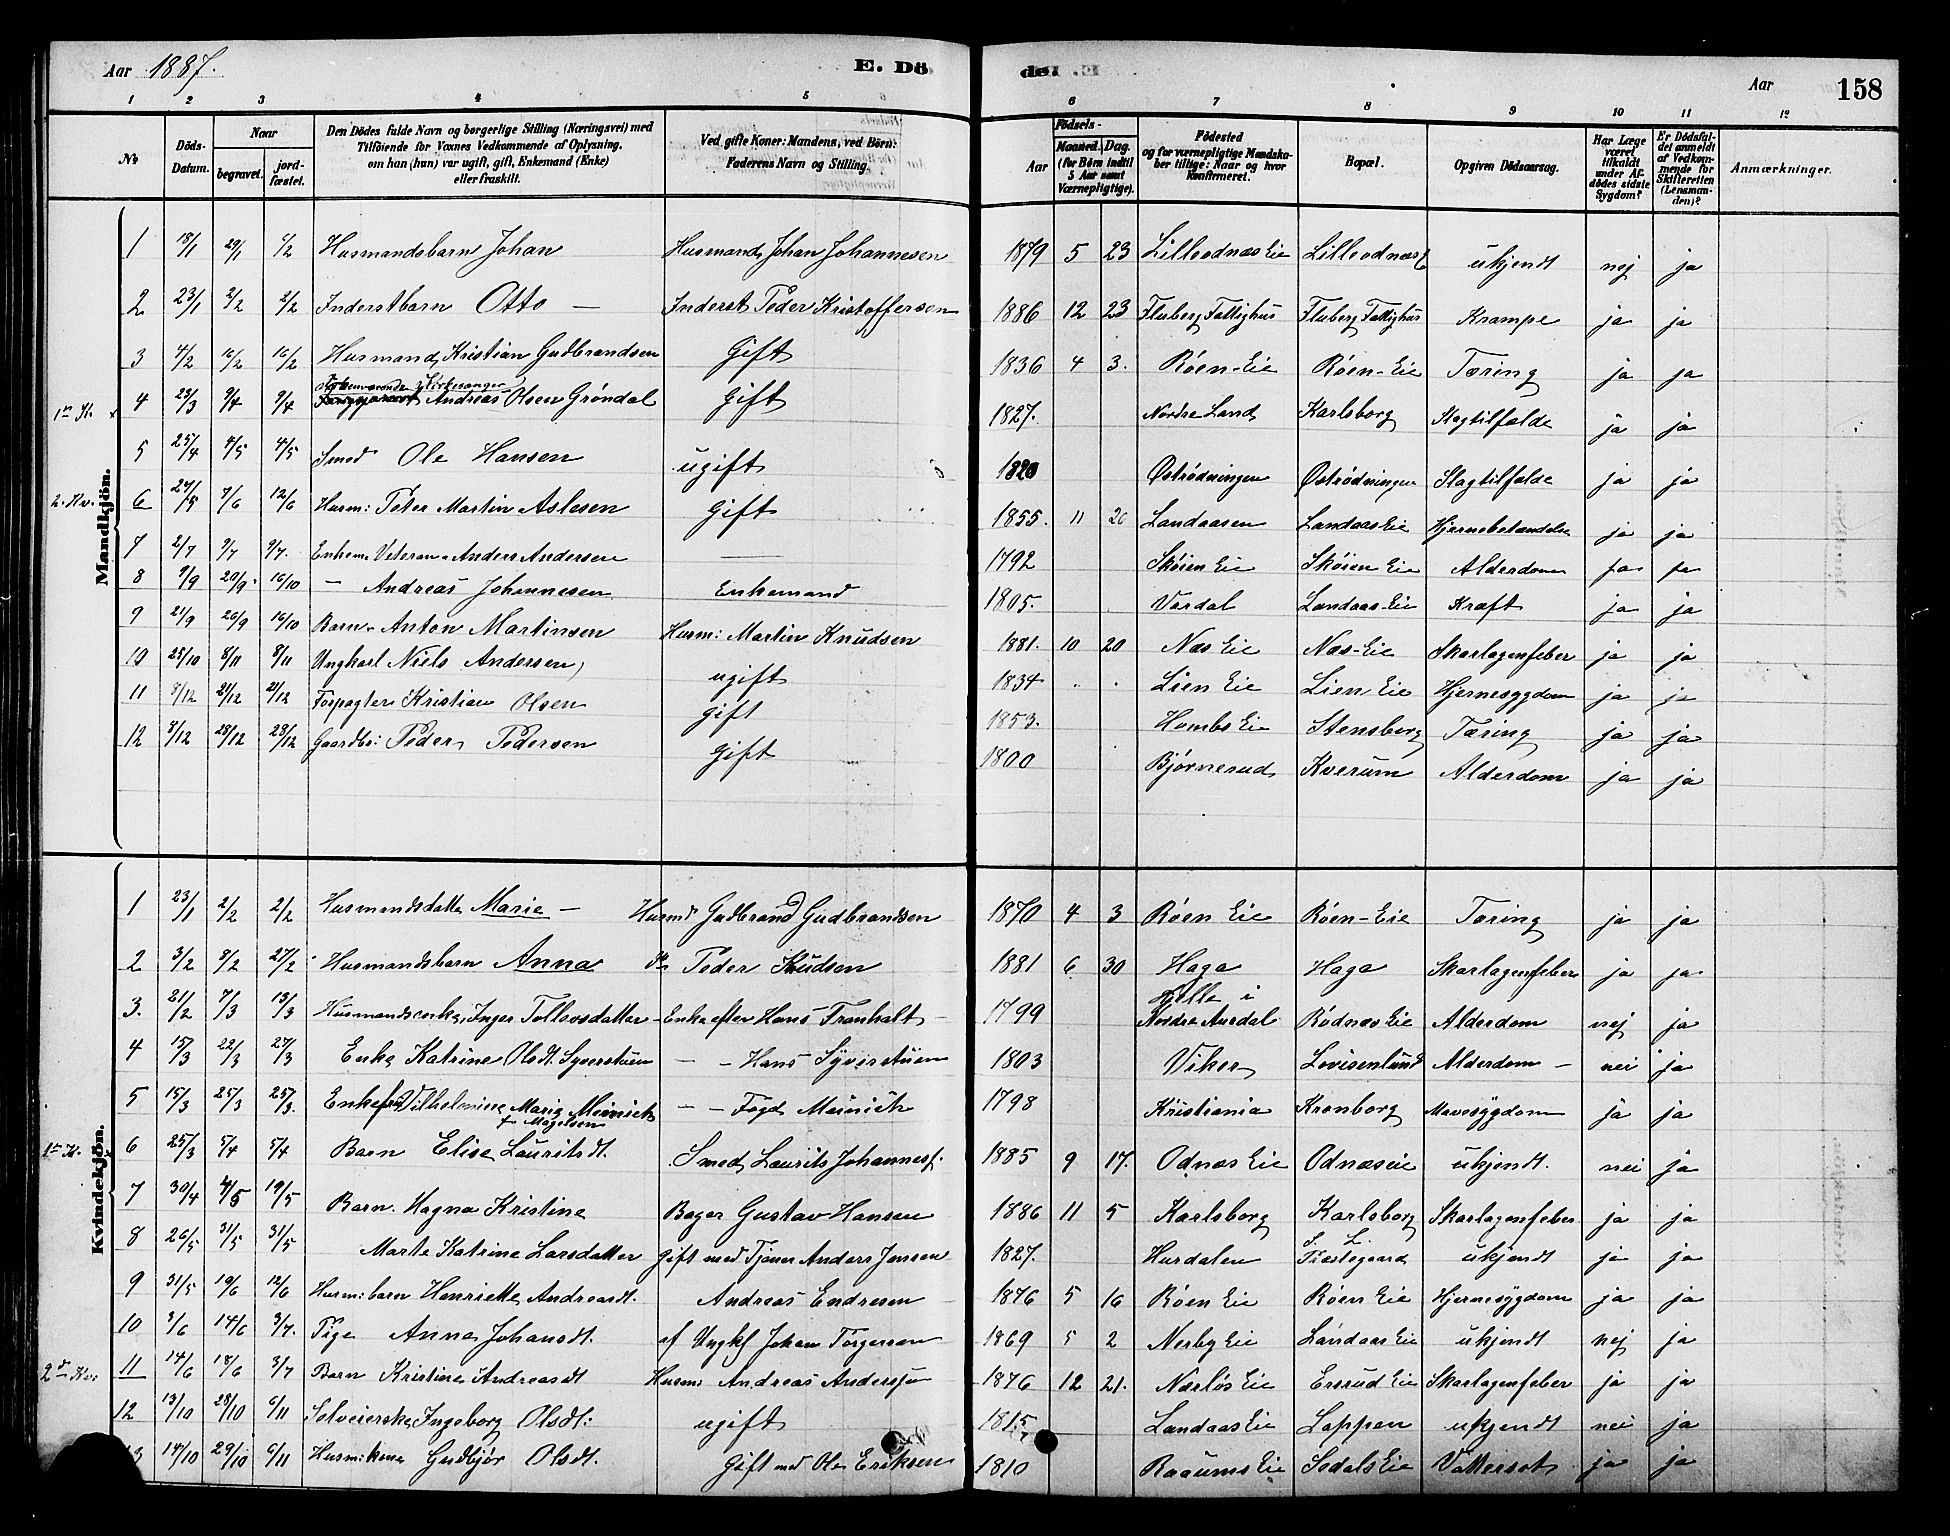 Aar 1887.
E. Dö
de
Aar
158
1 2 3 4 5 6 7 8 9 10 11 12
No
Döds-Datum.
Naar
begravet.
jord-fæstet.
Den Dödes fulde Navn og borgerlige Stilling (Næringsvei) med
Tilföiende for Voxnes Vedkommende af Oplysning,
om han (hun) var ugift, gift, Enkemand (Enke)
eller fraskilt.
Ved gifte Koner: Mandens, ved Börn:
Faderens Navn og Stilling.
Födsels-
Aar
Maaned. Dag.
(for Börn indtil
5 Aar samt
Værnepligtige).
Födested
og for værnepligtige Mandska-
ber tillige: Naar og hvor
konfirmeret.
Bopæl.
Opgiven Dödsaarsag.
Har Læge
været
tilkaldt
under Af-
dödes sidste
Sygdom?
Er Dödsfal-
det anmeldt
af Vedkom-
mende for
Skifteretten
(Lensman-
den)?
Anmærkninger.
Mandkjön.
1 18/1 29/1 6/2 Husmandsbarn Johan Husmand Johan Johannesen 1879 5 23 Lilleodnæs Eie Lilleodnæs E ukjendt nej ja
2 23/1 2/2 2/2 Inderstbarn Otto — Inderst Peder Kristoffersen 1886 12 23 Fluberg Fattighus Fluberg Fattighus Krampe ja ja
3 4/2 16/2 16/2 Husmand Kristian Gudbrandsen Gift 1836 4 3. Røen-Eie Røen-Eie Tæring ja ja
1ste K. 4 23/3 9/4 9/4 Forhenværende Kirkesanger Andreas Olsen Grøndal Gift 1827. Nordre Land Karlsborg Slagtilfælde ja ja
5 25/4 4/5 4/5 Smed Ole Hansen ugift 1820 Østrødningen Østrødningen Slagtilfælde ja ja
2. Kv. 6 27/5 7/6 12/6 Husm: Peter Martin Aslesen Gift 1855. 11 20 Landaasen Landaas Eie Hjernebetændelse ja ja
7 2/7 9/7 9/7. Enkem. Veteran Anders Andersen — 1792 Skøien Eie Skøien Eie Alderdom ja ja
8 9/9 20/9 16/10 — Andreas Johannesen Enkemand 1805. Vardal Landaas-Eie Kræft ja ja
9 21/9 26/9 16/10 Barn Anton Martinsen Husm: Martin Knudsen 1881. 10 20 Næs Eie Næs-Eie Skarlagensfeber ja ja
10 25/10 8/11 8/11 Ungkarl Niels Andersen ugift 1834 Lien Eie Lien Eie Hjernesygdom ja ja
11 8/12 21/12 21/12 Forpagter Kristian Olsen Gift 1853. Hombs Eie Stensborg Tæring ja ja
12 8/12 23/12 23/12 Gaardbr: Peder Pedersen Gift 1800 Bjørnerud Kverum Alderdom ja ja
Kvindekjön.
1 23/1 2/2 2/2 Husmandsdatter Marie — Husmd Gudbrand Gudbrandsen 1870 4 3 Røen Eie Røen-Eie Tæring ja ja
2 3/2 9/2 27/2 Husmandsbarn Anna Peder Knudsen 1881 6 30 Haga Haga Skarlagensfeber ja ja
3. 21/2 7/3 13/3 Husmandsenke Inger Tollevsdatter Enke efter Hans Tranhalt 1799 i Nordre Aurdal Rødnæs Eie Alderdom nej ja
4 15/3 22/3 27/3 Enke Katrine Olsdt. Syverstuen — — Hans Syverstuen 1803 Viker Lovisenlund Alderdom — nei ja
5 15/3 25/3 25/3. Enkefru Vilhelmine Marie Meinich f. Magelsen — — Fogd Meinich 1798 Kristiania Kronborg Mavesygdom ja ja
1ste K. 6 25/3 5/4 5/4 Barn Elise Lauritsdt. Smed Laurits Johannes. 1885 9 17. Odnæs Eie Odnæseie ukjendt. nei ja
7 30/4 4/5 19/5 Barn. Magna Kristine Bager Gustav Hansen 1886 11 5 Karlsborg Karlsborg Skarlagensfeber ja ja
8 26/5 31/5 31/5 Marte Katrine Larsdatter Gift med Tjener Anders Jensen 1827. Hurdalen S. L. Præstegaard ukjendt ja ja
9 31/5 19/6 12/6 Husm: barn Henriette Andreasdt. Andreas Endresen 1876 5 16 Røen Eie Røen Eie Hjernesygdom ja ja
10 3/6 14/6 3/7. Pige Anne Johansdt. af Ungkl Johan Torgersen 1869 5 2 Nerby Eie Landaas Eie ukjendt nej ja
2den Kv. 11 14/6 18/6 3/7 Barn Kristine Andreasdt Husm: Andreas Anderssen 1876 12 21. Nærløs Eie Ensrud Eie Skarlagensfeber ja ja
12 13/10 23/10 6/11 Selveierske Ingeborg Olsdt: ugift 1815 Landaas Eie Lappen ukjendt nei ja
3 14/10 29/10 6/11 Husm: kone Gudbjør Olsdt. Gift med Ole Eriksen 1810 Raaums Eie Sedals Eie Vattersot ja ja